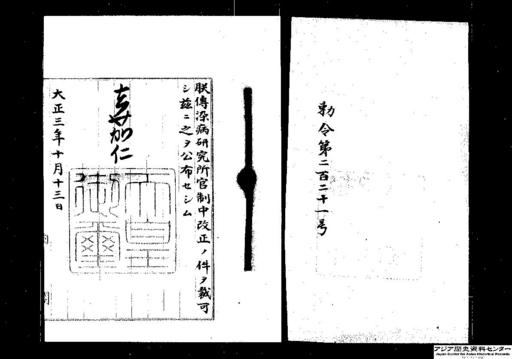 勅令第二百二十一号
朕傳染病研究所官制中改正ノ件ヲ裁可
シ茲ニ之ヲ公布セシム
嘉仁
天皇御璽
大正三年十月十三日
アジア歴史資料センター
Japan Center for Asian Historical Records